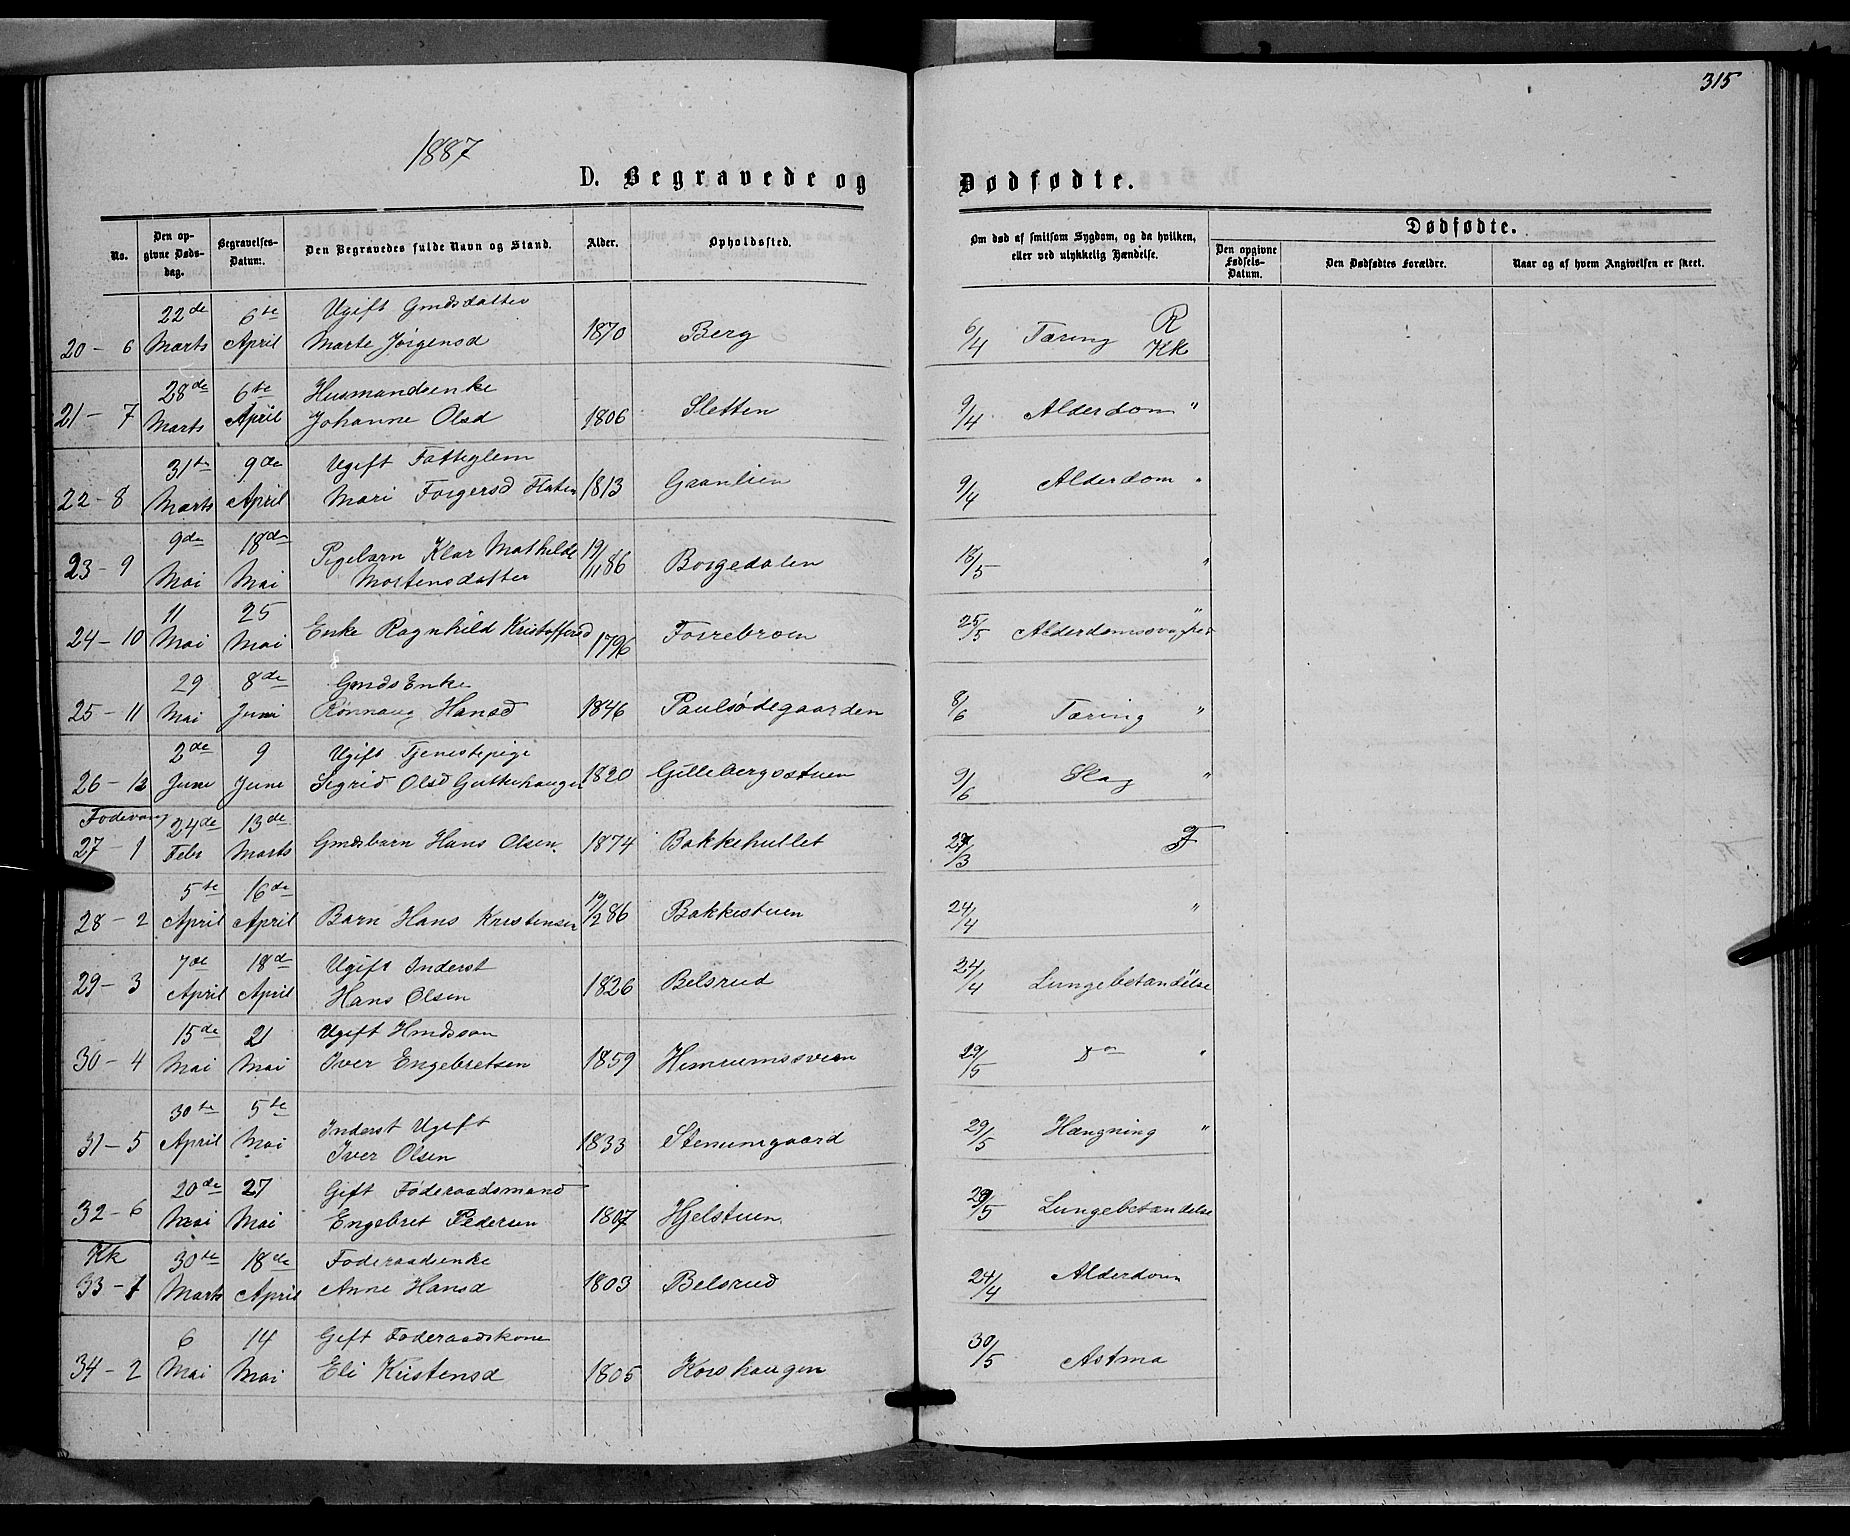 315
1887
D. Begravede og Dødfødte.
No. | Den opgivne Dødsdag. | Begravelses-Datum. | Den Begravedes fulde Navn og Stand. | Alder. | Opholdssted. | Om død af smitsom Sygdom, og da hvilken, eller ved ulykkelig Hændelse. | Dødfødte. | Den opgivne Fødsels-Datum. | Den Dødfødtes Forældre. | Naar og af hvem Angivelsen er skeet.
20 - 6 | 22de Marts | 6te April | Ugift Gmdsdatter Marte Jørgensd | 1870 | Berg | 6/4 Tæring R Kk
21 - 7 | 28de Marts | 6te April | Husmandsenke Johanne Olsd | 1806 | Sletten | 9/4 Alderdom "
22 - 8 | 31te Marts | 9de April | Ugift Fattiglem Mari Torgersd | 1813 | Graanlien | 9/4 Alderdom "
23 - 9 | 9de Mai | 18de Mai | Pigebarn Klar Mathilde Mortensdatter | 19/11 86 | Borgedalen | 18/5 "
24 - 10 | 11 Mai | 25 Mai | Enke Ragnhild Kristoffersd | 1796 | 25/5 Alderdomssvaghed "
25 - 11 | 29 Mai | 8de Juni | Gmds Enke Rønnaug Hansd | 1846 | Paulsødegaarden | 8/6 Tæring "
26 - 12 | 2de June | 9 June | Ugift Tjenestepige Sigrid Olsd | 1820 | Gillebergsstuen | 9/6 Slag "
Fodevang
27 - 1 | 24de Febr | 13de Marts | Gmdsbarn Hans Olsen. | 1874 | Bakkehullet | 27/3 F
28 - 2 | 5te April | 16de April | Barn Hans Kristensen | 19/2 86 | Bakkestuen | 24/4 "
29 - 3 | 7de April | 18de April | Ugift Inderst Hans Olsen | 1826 | Belsrud | 24/4 Lungebetændelse
30 - 4 | 15de Mai | 21 Mai | Ugift Hmdssøn Iver Engebretsen | 1859 | 29/5 Do "
31 - 5 | 30te April | 5te Mai | Inderst Ugift Iver Olsen | 1833 | Stenumgaard | 29/5 Hængning "
32 - 6 | 20de Mai | 27 Mai | Gift Føderaadsmand Engebret Pedersen | 1807 | Hjelstuen | 29/5 Lungebetændelse
Kk
33 - 1 | 30te Marts | 18de April | Føderaadsenke Anne Hansd | 1803 | Belsrud | 24/4 Alderdom
34 - 2 | 6 Mai | 14 Mai | Gift Føderaadskone Eli Kristensd | 1805 | Korshaugen | 30/5 Astma